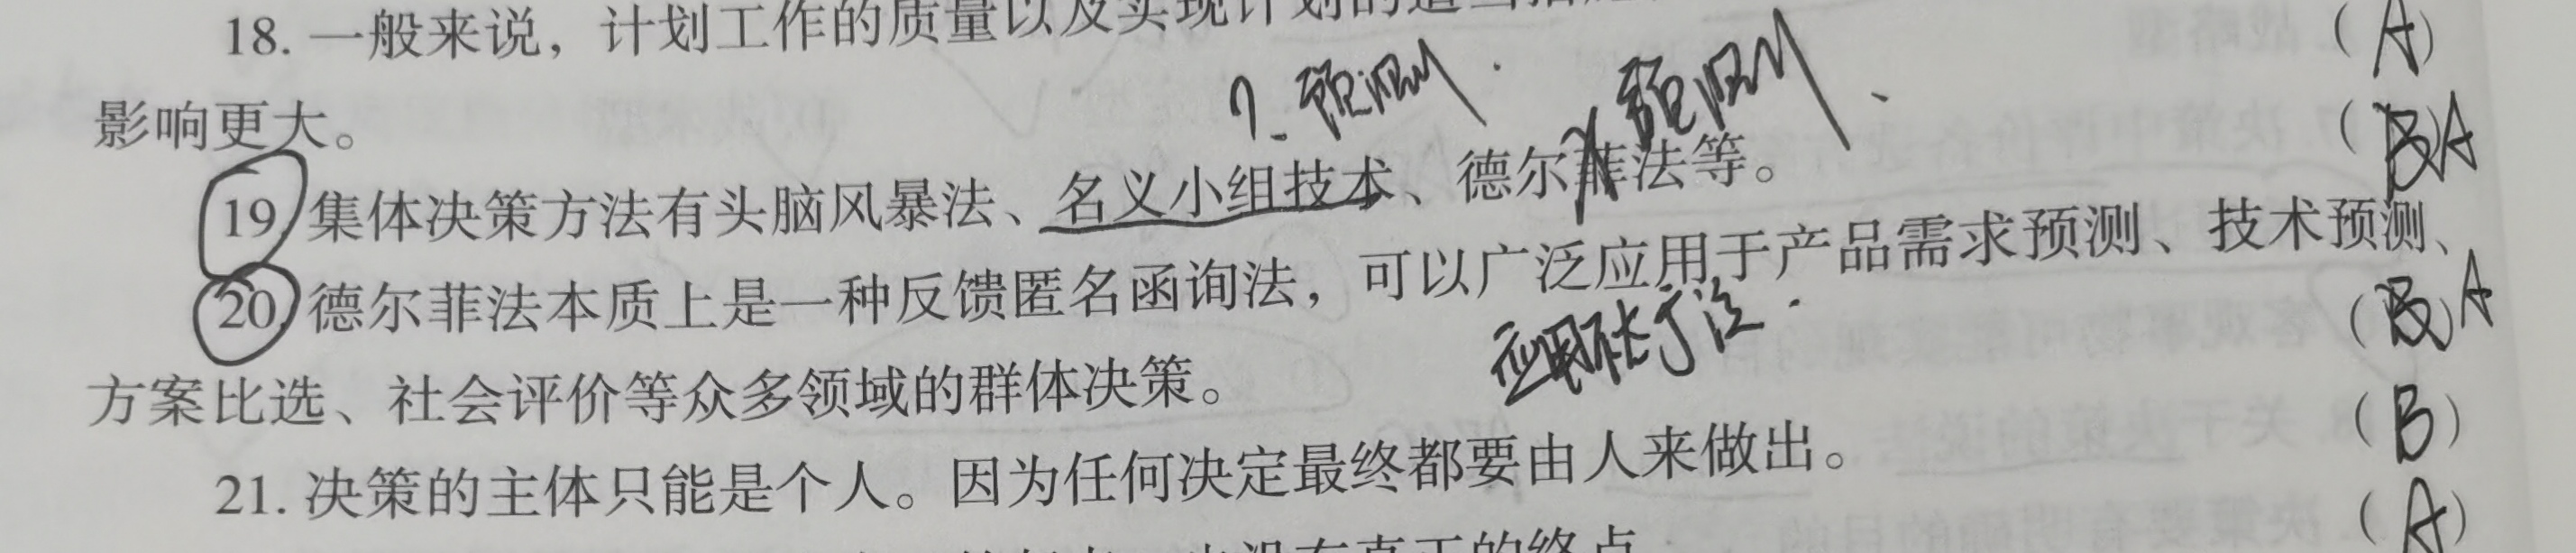 18. 一般来说，计划工作的质量以及实现计划的适当
(A)
影响更大。
?. 预测.
预测、
(B)A
19. 集体决策方法有头脑风暴法、名义小组技术、德尔菲法等。
20. 德尔菲法本质上是一种反馈匿名函询法，可以广泛应用于产品需求预测、技术预测、
应用
(B)A
方案比选、社会评价等众多领域的群体决策。
(B)
21. 决策的主体只能是个人。因为任何决定最终都要由人来做出。
(A)
没有真正的终点